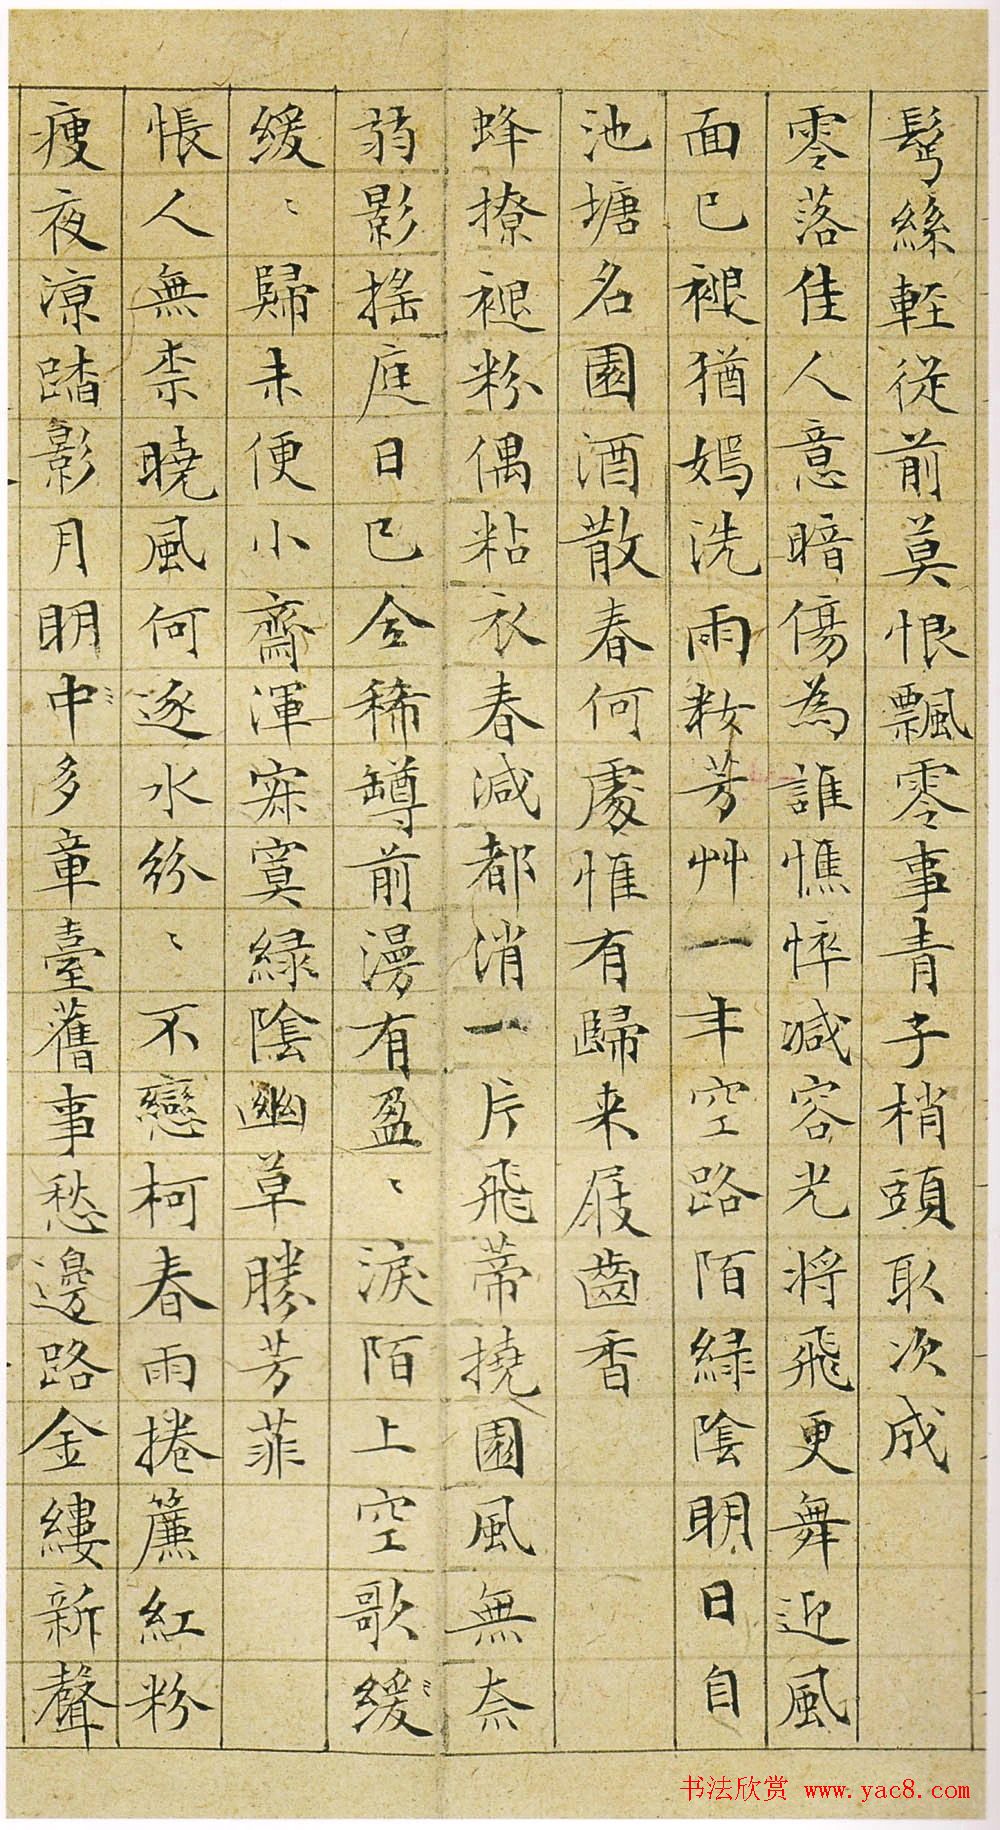 鬢絲輕從前莫恨飄零事青子梢頭取次成
零落佳人意暗傷為誰憔悴減容光将飛更舞迎風
面已褪猶嫣洗雨粧芳艸一年空路陌緑陰明日自
池塘名園酒散春何處惟有歸来屐齒香
蜂撩褪粉偶粘衣春減都消一片飛蒂撓園風無奈
弱影搖庭日已全稀罇前漫有盈〻淚陌上空歌緩
緩〻歸未便小齋渾寂寞緑陰幽草勝芳菲
悵人無柰曉風何逐水紛〻不戀柯春雨捲簾紅粉
瘦夜涼踏影月明中多章臺舊事愁邊路金縷新聲
书法欣赏 www.yac8.com